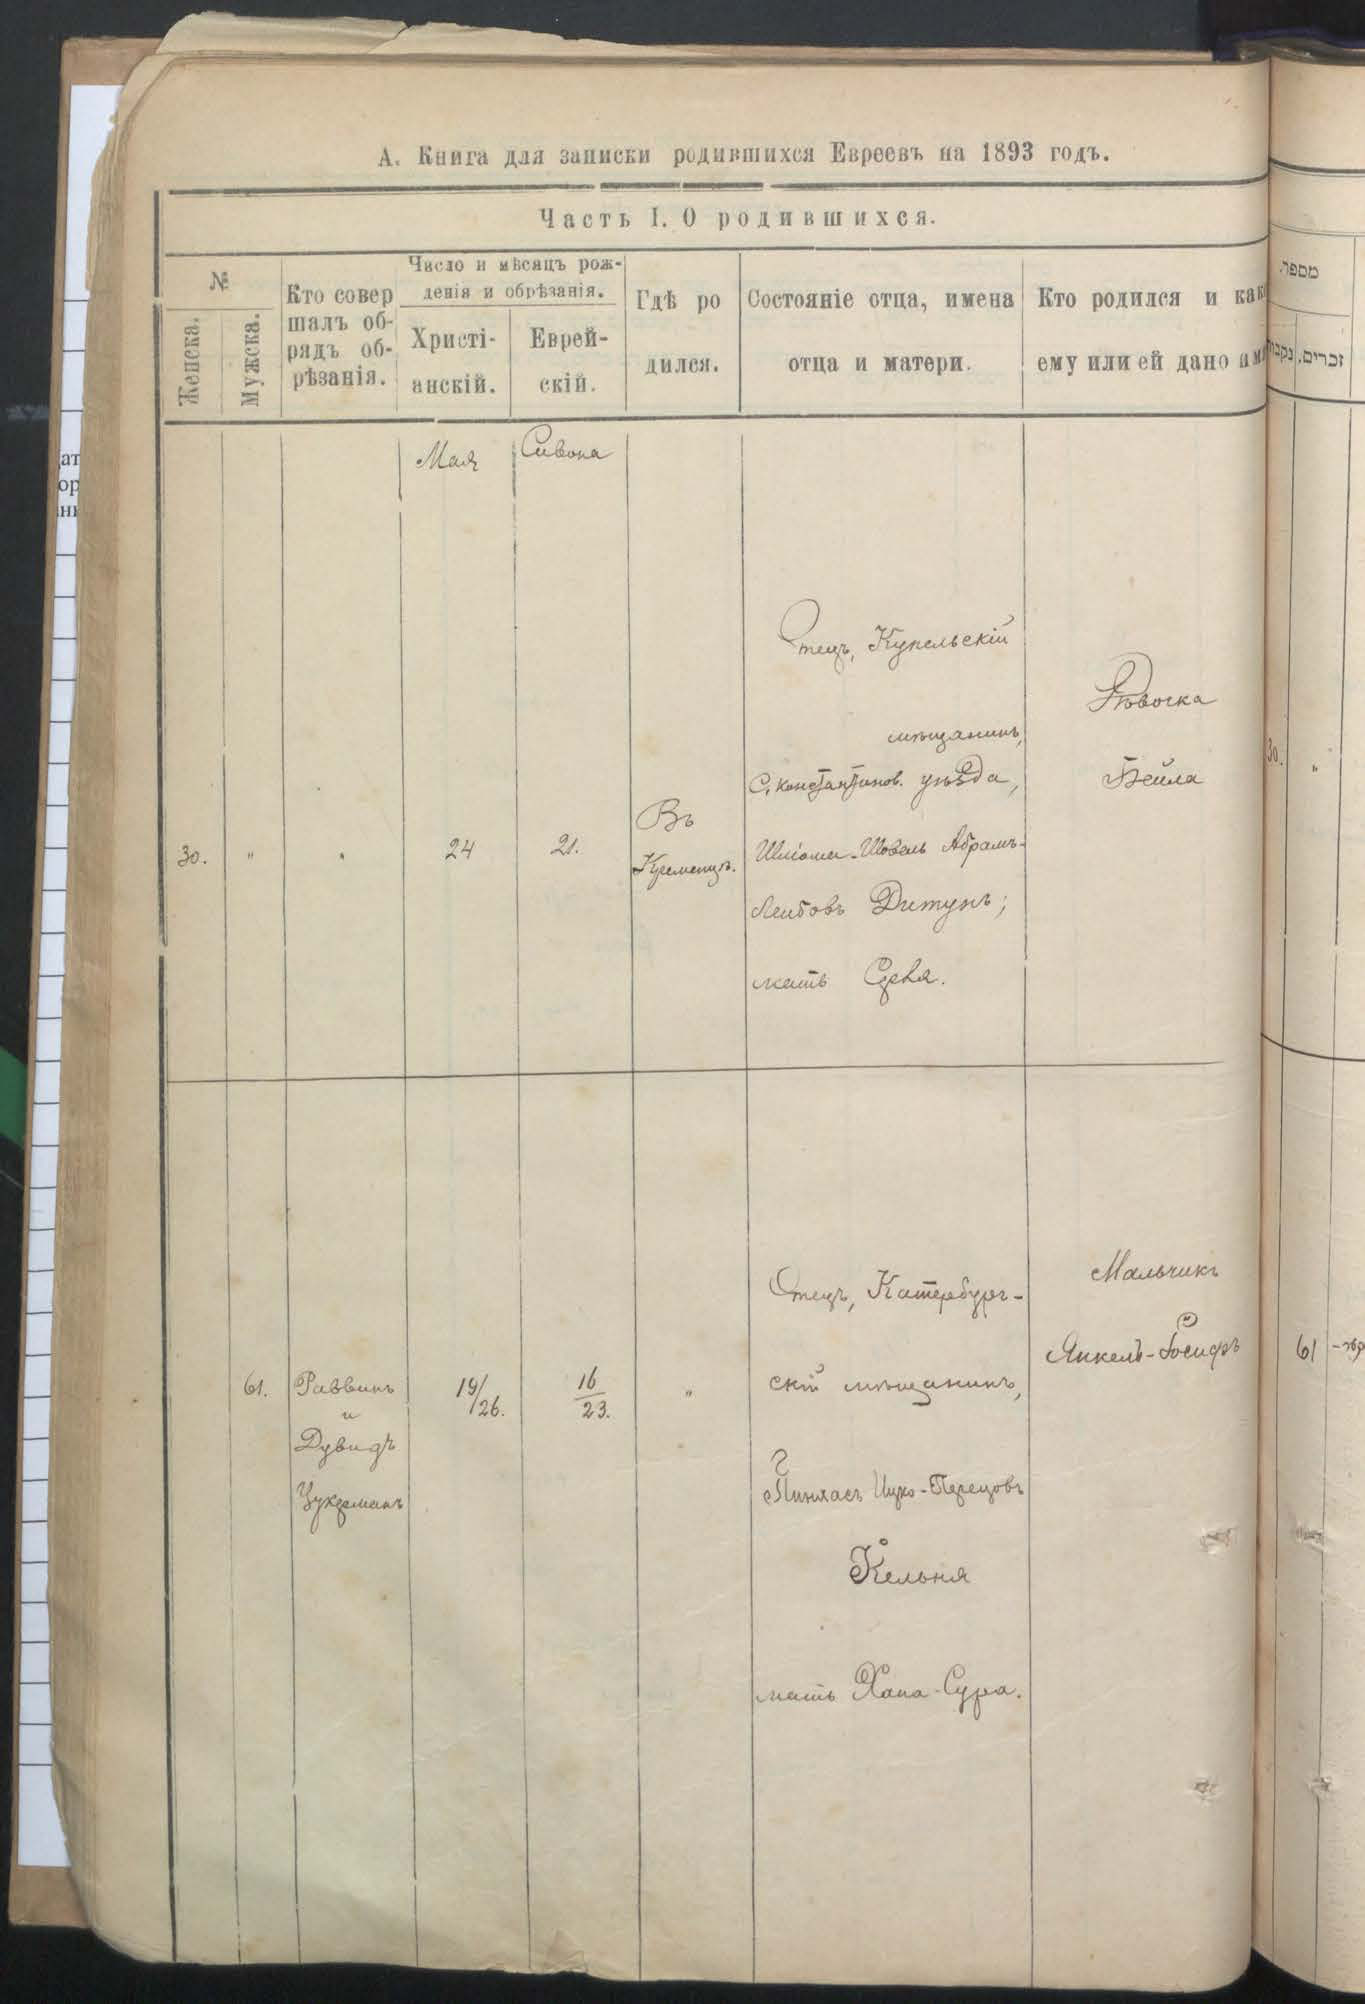 А. Книга для записки родившихся Евреевъ на 1893 годъ.
Часть I. О родившихся.
№
Женска.
Мужска.
Кто совер
шалъ об-
рядъ об-
рѣзанія.
Число и мѣсяцъ рож-
денія и обрѣзанія.
Христі-
анскій.
Еврей-
скій.
Гдѣ ро
дился.
Состояніе отца, имена
отца и матери.
Кто родился и как
ему или ей дано им
מספר.
זכרים.
Мая
Сивона
30.
"
"
24
21.
Въ
Кременцѣ.
Отецъ, Купельскій
мѣщанинъ,
С. Константинов. уѣзда,
Шлёма-Шовель Абрамъ-
Лейбовъ Дитунъ;
мать
Дѣвочка
Бейла
30.
"
61.
Раввинъ
и
Дувидъ
Цукерманъ
19/26.
16
23.
"
Отецъ, Катербург-
скій мѣщанинъ,
Пинхасъ Ицко-Перецовъ
Кельня
мать Хана-Сура.
Мальчикъ
Янкель-Іосифъ
61